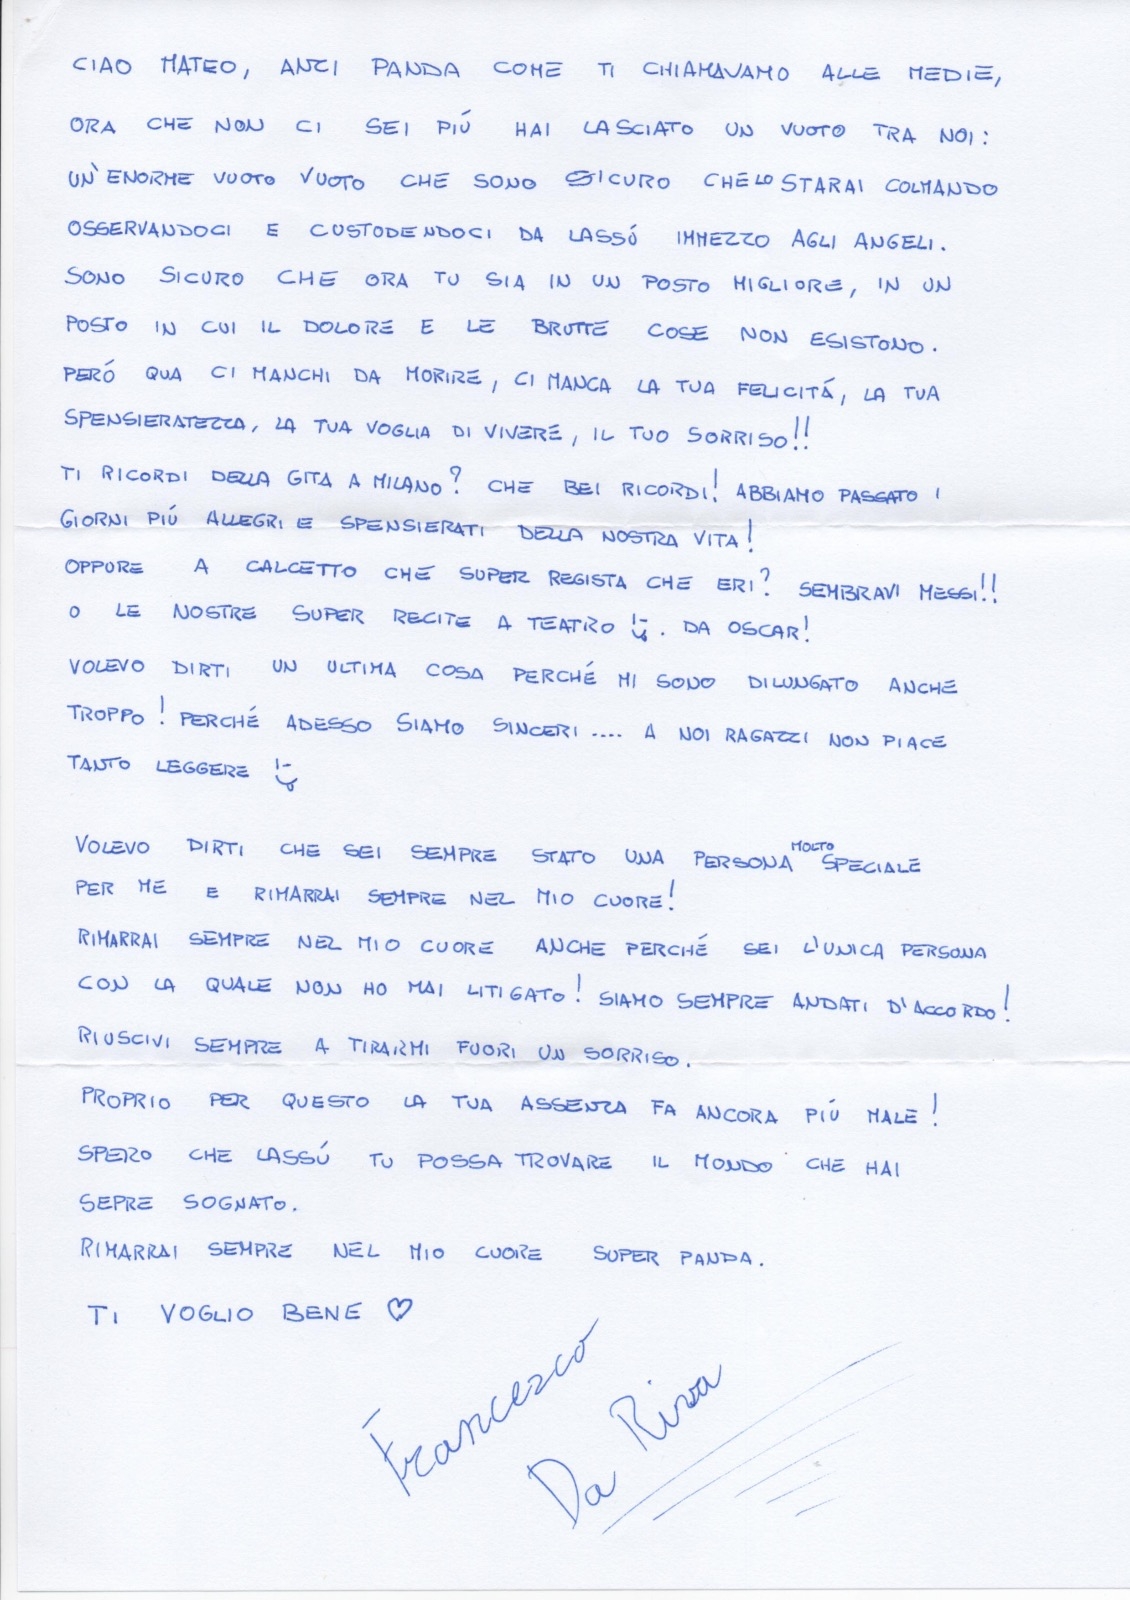 CIAO MATEO, ANZI PANDA COME TI CHIAMAVAMO ALLE MEDIE,
ORA CHE NON CI SEI PIÚ HAI LASCIATO UN VUOTO TRA NOI:
UN'ENORME VUOTO VUOTO CHE SONO SICURO CHE LO STARAI COLMANDO
OSSERVANDOCI E CUSTODENDOCI DA LASSÚ IMMEZZO AGLI ANGELI.
SONO SICURO CHE ORA TU SIA IN UN POSTO MIGLIORE, IN UN
POSTO IN CUI IL DOLORE E LE BRUTTE COSE NON ESISTONO.
PERÓ QUA CI MANCHI DA MORIRE, CI MANCA LA TUA FELICITÁ, LA TUA
SPENSIERATEZZA, LA TUA VOGLIA DI VIVERE, IL TUO SORRISO!!
TI RICORDI DELLA GITA A MILANO? CHE BEI RICORDI! ABBIAMO PASSATO I
GIORNI PIÚ ALLEGRI E SPENSIERATI DELLA NOSTRA VITA!
OPPURE A CALCETTO CHE SUPER REGISTA CHE ERI? SEMBRAVI MESSI!!
O LE NOSTRE SUPER RECITE A TEATRO. DA OSCAR!
VOLEVO DIRTI UN ULTIMA COSA PERCHÉ MI SONO DILUNGATO ANCHE
TROPPO! PERCHÉ ADESSO SIAMO SINCERI.... A NOI RAGAZZI NON PIACE
TANTO LEGGERE
VOLEVO DIRTI CHE SEI SEMPRE STATO UNA PERSONA MOLTO SPECIALE
PER ME E RIMARRAI SEMPRE NEL MIO CUORE!
RIMARRAI SEMPRE NEL MIO CUORE ANCHE PERCHÉ SEI L'UNICA PERSONA
CON LA QUALE NON HO MAI LITIGATO! SIAMO SEMPRE ANDATI D'ACCORDO!
RIUSCIVI SEMPRE A TIRARMI FUORI UN SORRISO.
PROPRIO PER QUESTO LA TUA ASSENZA FA ANCORA PIÚ MALE!
SPERO CHE LASSÚ TU POSSA TROVARE IL MONDO CHE HAI
SEPRE SOGNATO.
RIMARRAI SEMPRE NEL MIO CUORE SUPER PANDA.
TI VOGLIO BENE ♡
Francesco
Da Riva